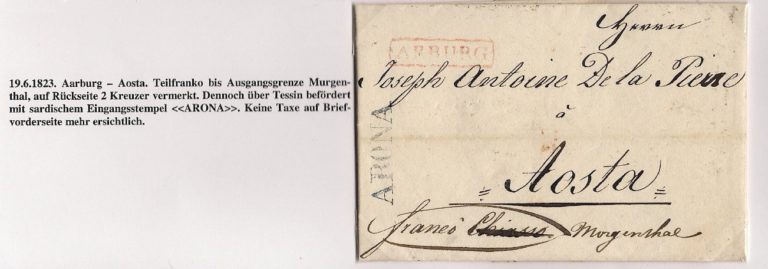 19.6.1823. Aarburg – Aosta. Teilfranko bis Ausgangsgrenze Murgen-
thal, auf Rückseite 2 Kreuzer vermerkt. Dennoch über Tessin befördert
mit sardischem Eingangsstempel <<ARONA>>. Keine Taxe auf Brief-
vorderseite mehr ersichtlich.
Herrn
ARBURG
Joseph Antoine De la Pierre
à
ARONA
Aosta
franco Chiasso Morgenthal